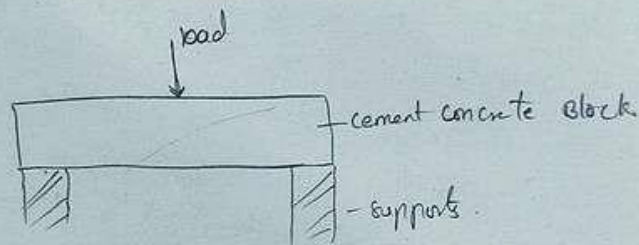 load
cement concrete Block
- supports.